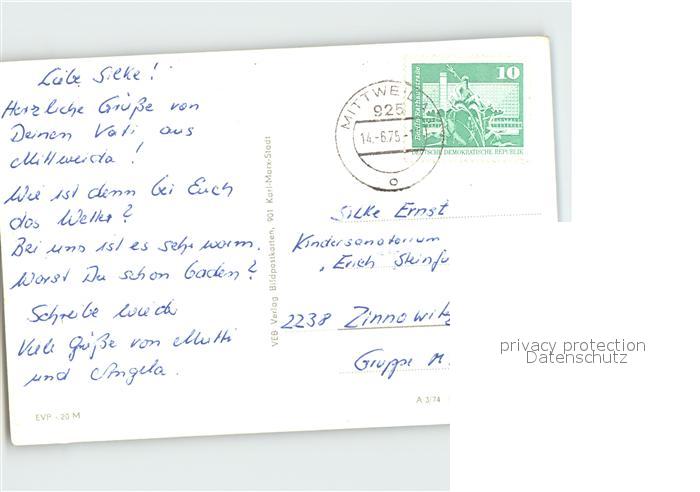 Liebe Silke!
Herzliche Grüße von
Deinen Vati aus
Mittweida!
Wie ist denn bei Euch
das Wetter?
Bei uns ist es sehr warm.
Warst Du schon baden?
Schreibe wieder
Viele Grüße von Mutti
und Angela.
EVP -.20 M
VEB Verlag Bildpostkarten, 901 Karl-Marx-Stadt
MITTWEIDA 1
925
14.-6.75-
o
10
DEUTSCHE DEMOKRATISCHE REPUBLIK
Silke Ernst
Kindersanatorium
"Erich Steinfu
2238 Zinnowitz
Gruppe M.
A 3/74
privacy protection
Datenschutz